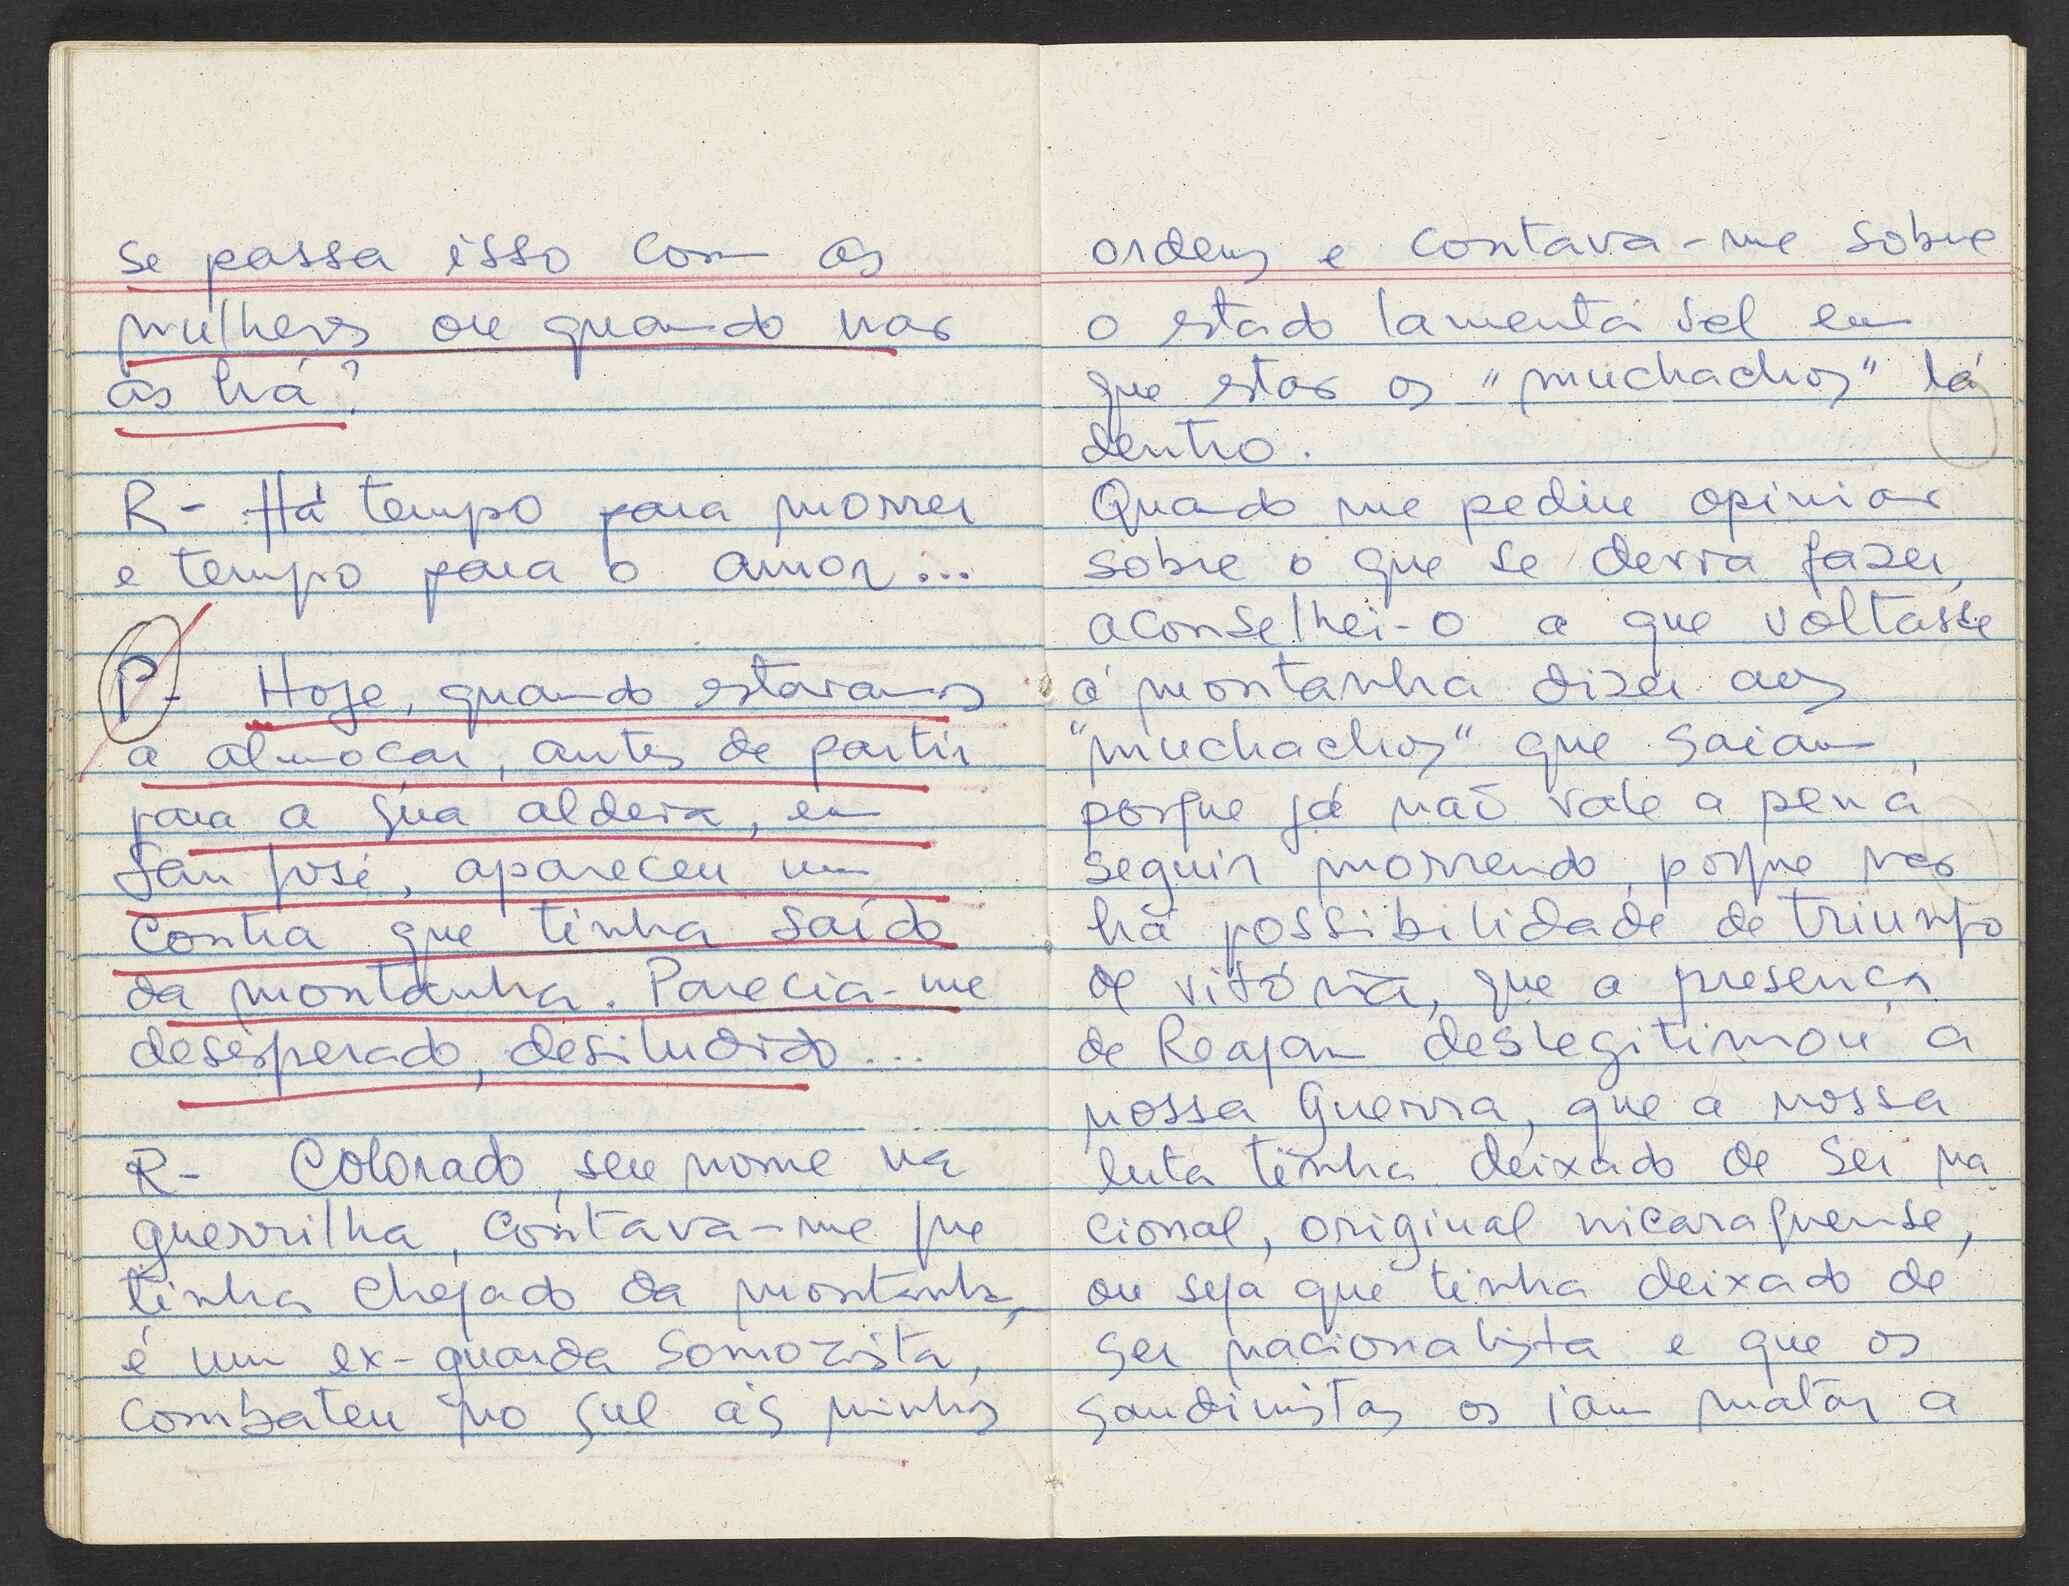 se passa isso com as
mulheres ou quando nao
as há?
R- Há tempo para morrer
e tempo para o amor...
P- Hoje, quando estavamos
a almoçar, antes de partir
para a sua aldeia, em
San José, apareceu um
contra que tinha saído
da montanha. Parecia-me
desesperado, desiludido...
R- Colorado, seu nome na
guerrilha, contava-me que
tinha chegado da montanha,
é um ex-guarda somozista,
combateu no sul às minhas
ordens e contava-me sobre
o estado lamentável em
que estao os "muchachos" lá
dentro.
Quando me pediu opiniao
sobre o que se devia fazer,
aconselhei-o a que voltasse
à montanha dizer aos
"muchachos" que saiam,
porque já naõ vale a pena
seguir morrendo, porque nao
há possibilidade de triunfo
de vitória, que a presença
de Reagan deslegitimou a
nossa Guerra, que a nossa
luta tinha deixado de ser na
cional, original nicaraguense,
ou seja que tinha deixado de
ser nacionalista e que os
sandinistas os iam matar a